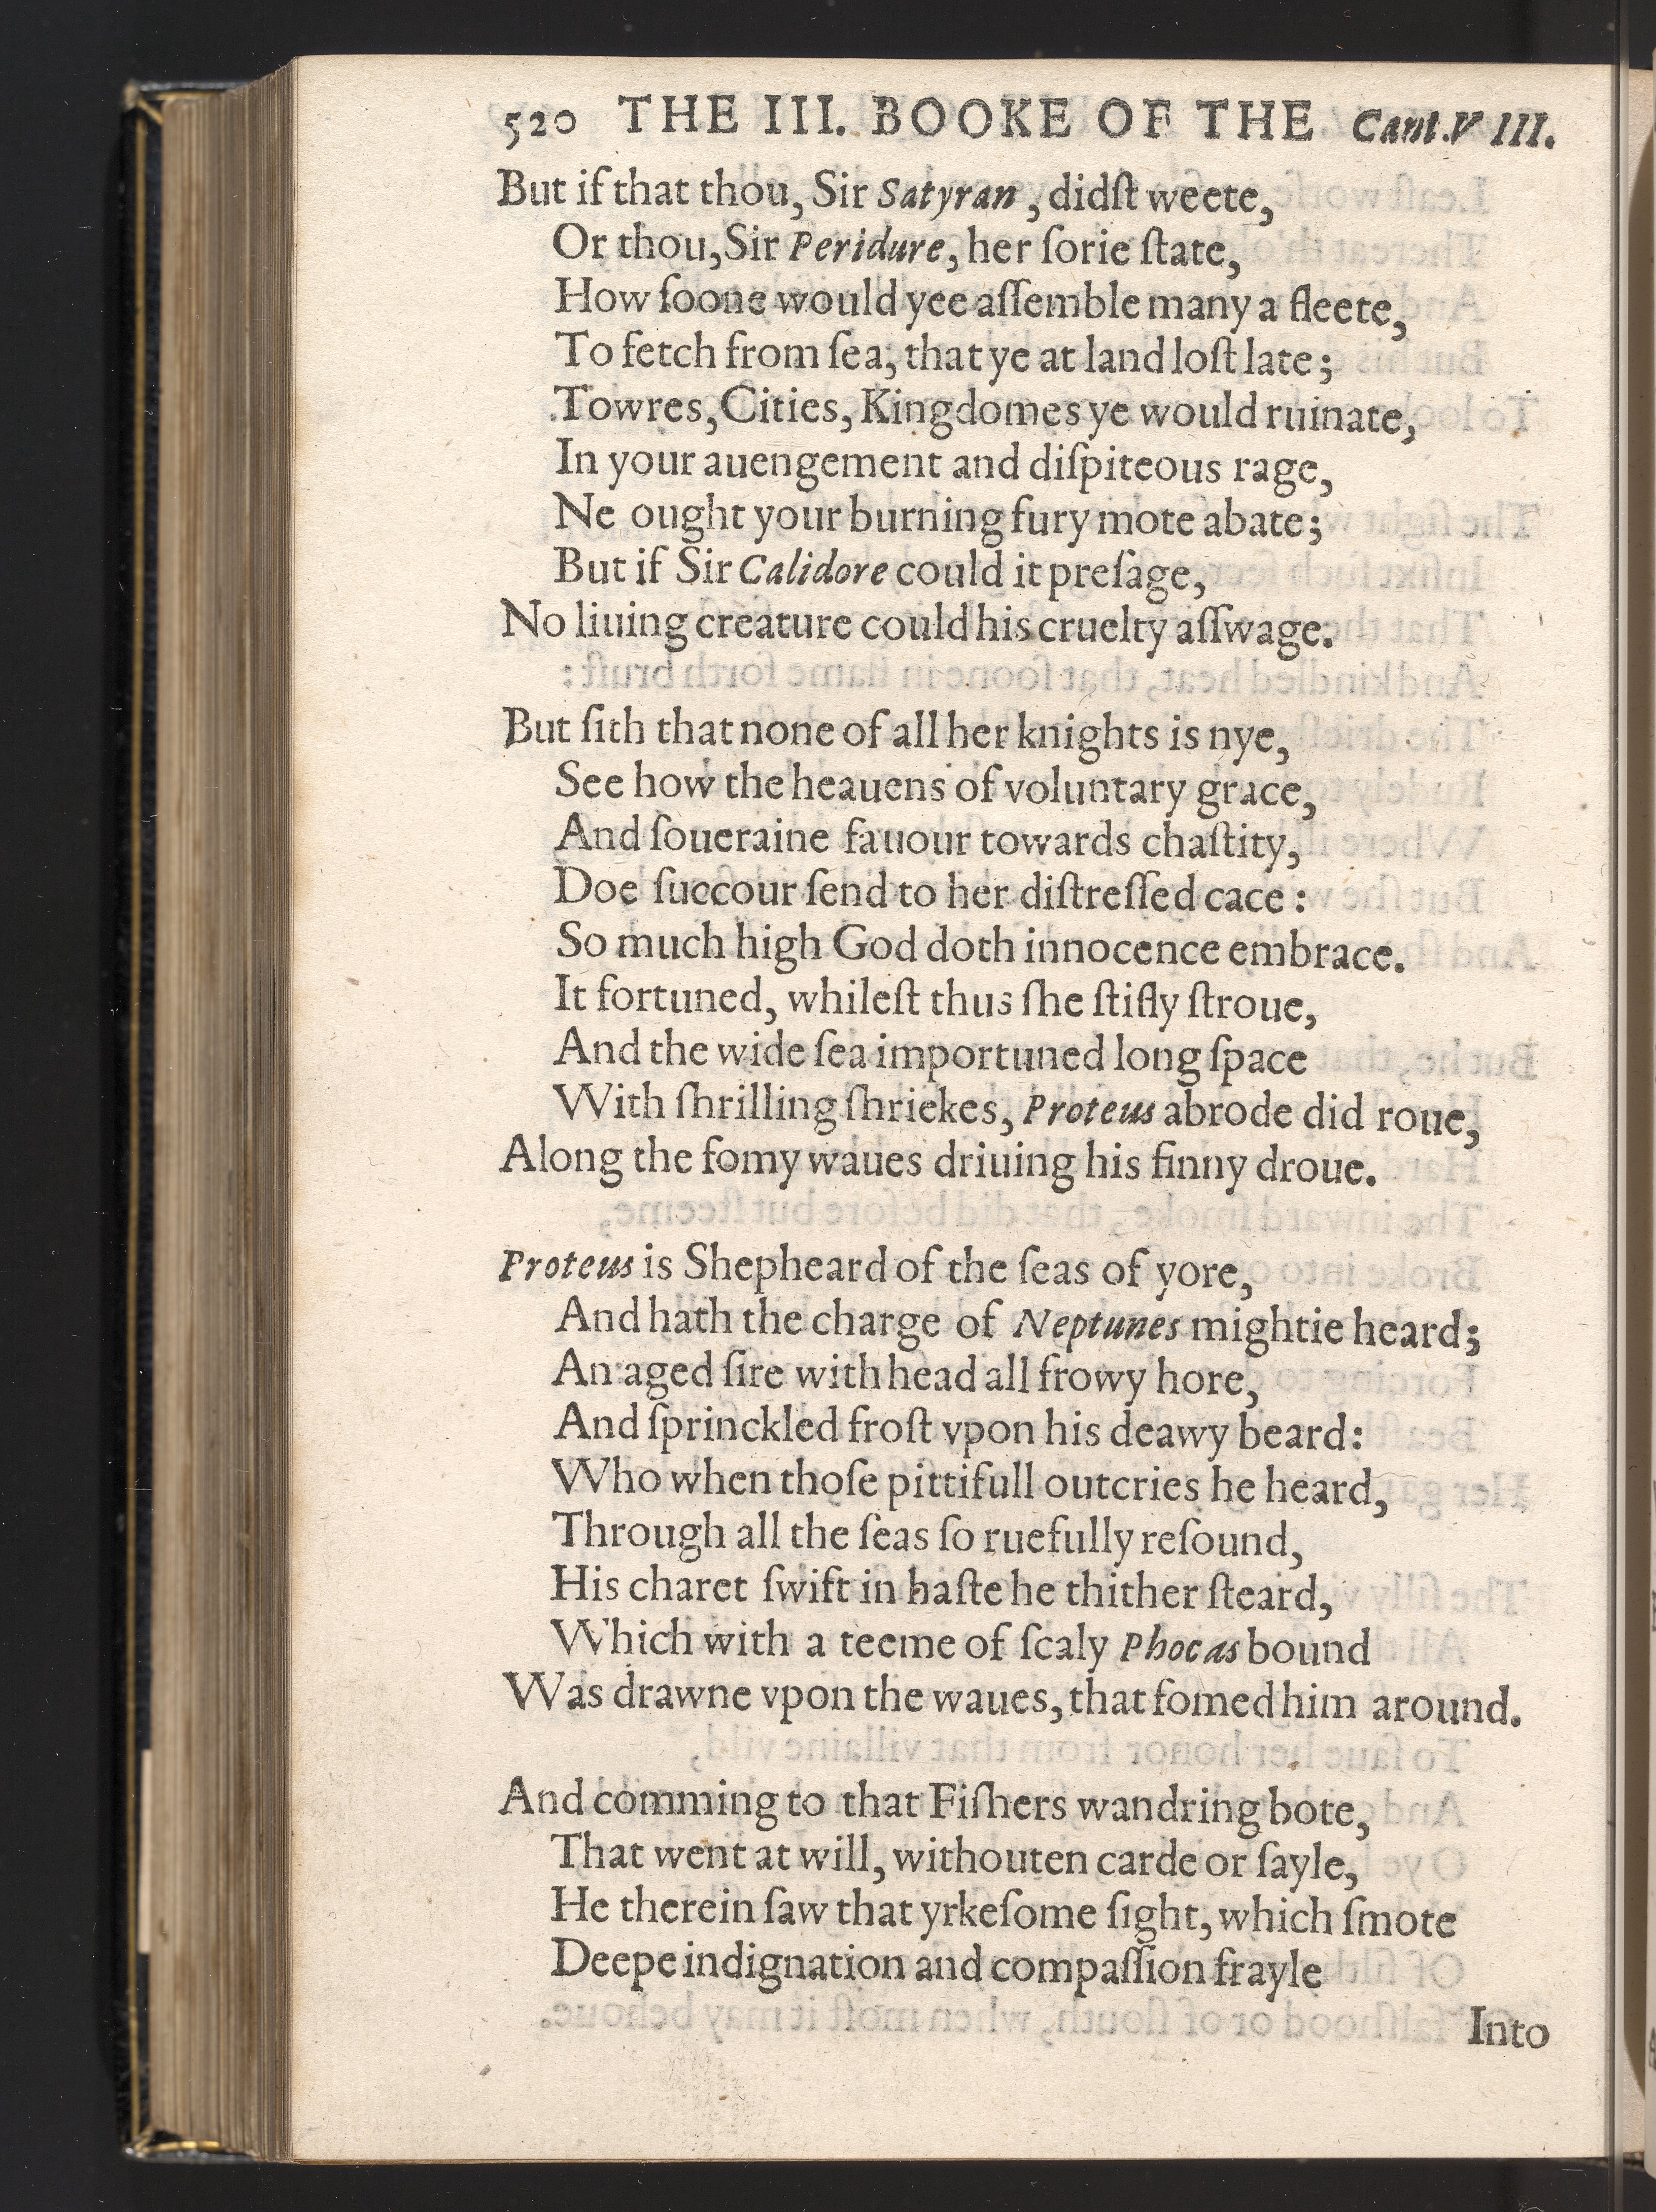 520 THE III. BOOKE OF THE Cant.VIII.
But if that thou, Sir Satyran, didſt weete,
Or thou, Sir Peridure, her ſorie ſtate,
How ſoone would yee aſſemble many a fleete,
To fetch from ſea, that ye at land loſt late;
Towres, Cities, Kingdomes ye would ruinate,
In your auengement and diſpiteous rage,
Ne ought your burning fury mote abate;
But if Sir Calidore could it preſage,
No liuing creature could his cruelty aſſwage.
But ſith that none of all her knights is nye,
See how the heauens of voluntary grace,
And ſoueraine fauour towards chaſtity,
Doe ſuccour ſend to her diſtreſſed cace:
So much high God doth innocence embrace.
It fortuned, whileſt thus ſhe ſtifly ſtroue,
And the wide ſea importuned long ſpace
With ſhrilling ſhriekes, Proteus abrode did roue,
Along the fomy waues driuing his finny droue.
Proteus is Shepheard of the ſeas of yore,
And hath the charge of Neptunes mightie heard;
An aged ſire with head all frowy hore,
And ſprinckled froſt vpon his deawy beard:
Who when thoſe pittifull outcries he heard,
Through all the ſeas ſo ruefully reſound,
His charet ſwift in haſte he thither ſteard,
Which with a teeme of ſcaly Phocas bound
Was drawne vpon the waues, that fomed him around.
And comming to that Fiſhers wandring bote,
That went at will, withouten carde or ſayle,
He therein ſaw that yrkeſome ſight, which ſmote
Deepe indignation and compaſſion frayle
Into